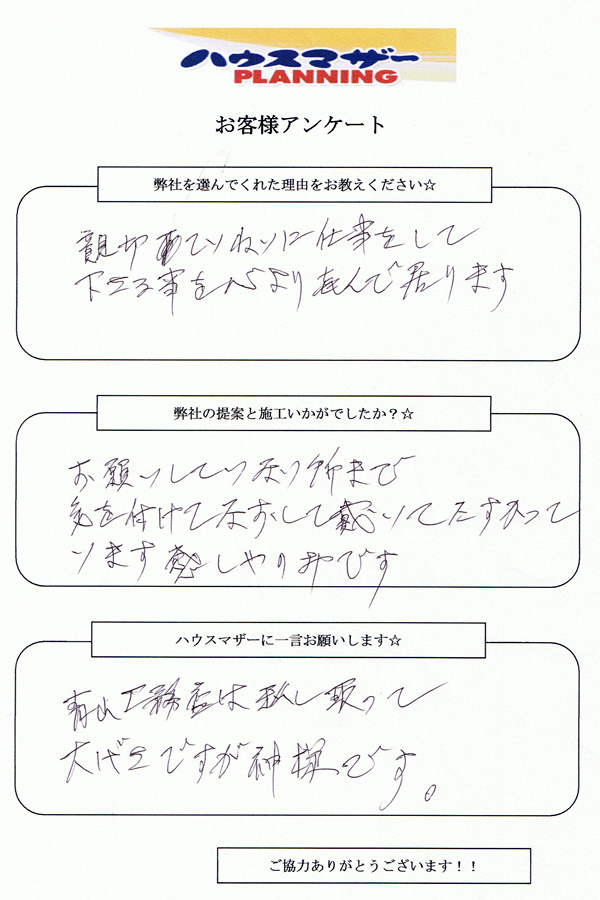 ハウスマザー
PLANNING
お客様アンケート
弊社を選んでくれた理由をお教えください☆
親切ていねいに仕事をして
下さる事を心より喜んで居ります
弊社の提案と施工いかがでしたか？☆
お願いしていない所まで
気を付けてなおして戴いてたすかって
います感しゃのみです
ハウスマザーに一言お願いします☆
青山工務店は私し取って
大げさですが神様です。
ご協力ありがとうございます！！